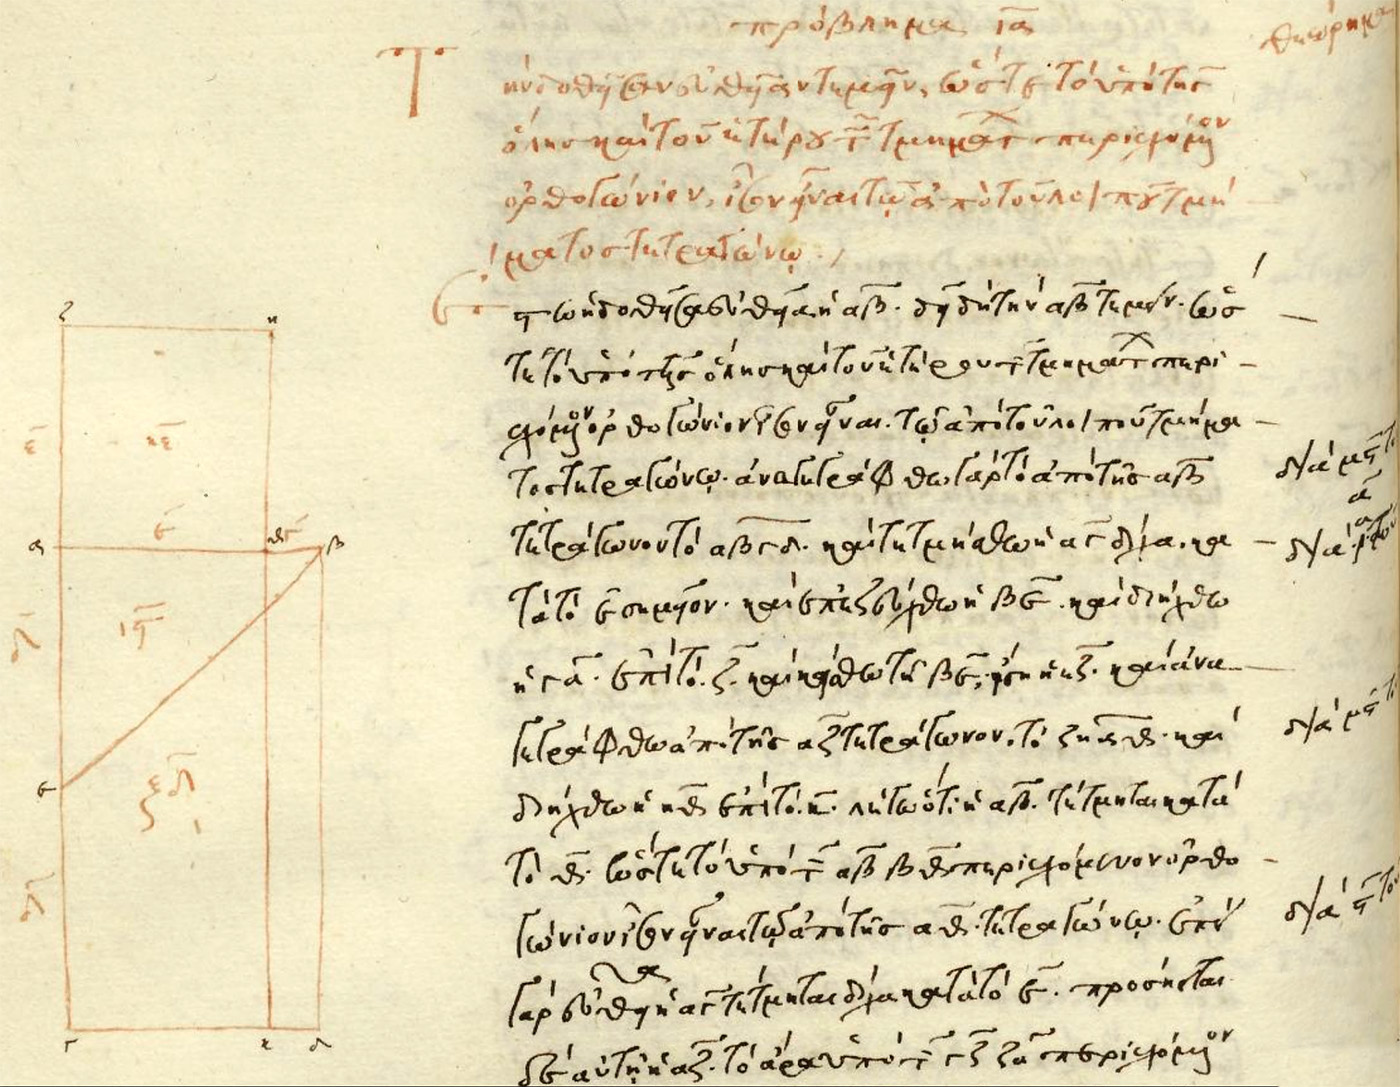 πρόβλημα ια
θεώρημα
Τ
ὴν δοθεῖσαν εὐθεῖαν τεμεῖν, ὥστε τὸ ὑπὸ τῆς
ὅλης καὶ τοῦ ἑτέρου τῶν τμημάτων περιεχόμενον
ὀρθογώνιον, ἴσον εἶναι τῷ ἀπὸ τοῦ λοιποῦ τμή
ματος τετραγώνῳ.
Ἔστω ἡ δοθεῖσα εὐθεῖα ἡ αβ. δεῖ δὴ τὴν αβ τεμεῖν. ὥσ
τε τὸ ὑπὸ τῆς ὅλης καὶ τοῦ ἑτέρου τῶν τμημάτων περι
εχόμενον ὀρθογώνιον ἴσον εἶναι. τῷ ἀπὸ τοῦ λοιποῦ τμήμα
τος τετραγώνῳ. ἀναγεγράφθω γὰρ τὸ ἀπὸ τῆς αβ
τετράγωνον τὸ αβγδ. καὶ τετμήσθω ἡ αγ δίχα. κα
τὰ τὸ ε σημεῖον. καὶ ἐπεζεύχθω ἡ βε. καὶ διήχθω
ἡ γα. ἐπὶ τὸ ζ. καὶ κείσθω τῇ βε, ἴση ἡ εζ. καὶ ἀνα
γεγράφθω ἀπὸ τῆς αζ τετράγωνον. τὸ ζηαθ. καὶ
διήχθω ἡ ηθ ἐπὶ τὸ κ. λέγω ὅτι ἡ αβ. τέτμηται κατὰ
τὸ θ. ὥστε τὸ ὑπὸ τῶν αβ βθ περιεχόμενον ὀρθο
γώνιον ἴσον εἶναι τῷ ἀπὸ τῆς αθ. τετραγώνῳ. ἐπεὶ
γὰρ εὐθεῖα ἡ αγ τέτμηται δίχα κατὰ τὸ ε. πρόσκειται
δὲ αὐτῇ ἡ αζ. τὸ ἄρα ὑπὸ τῶν γζ ζα περιεχόμενον
ζ
η
α
θ
β
ε
γ
κ
δ